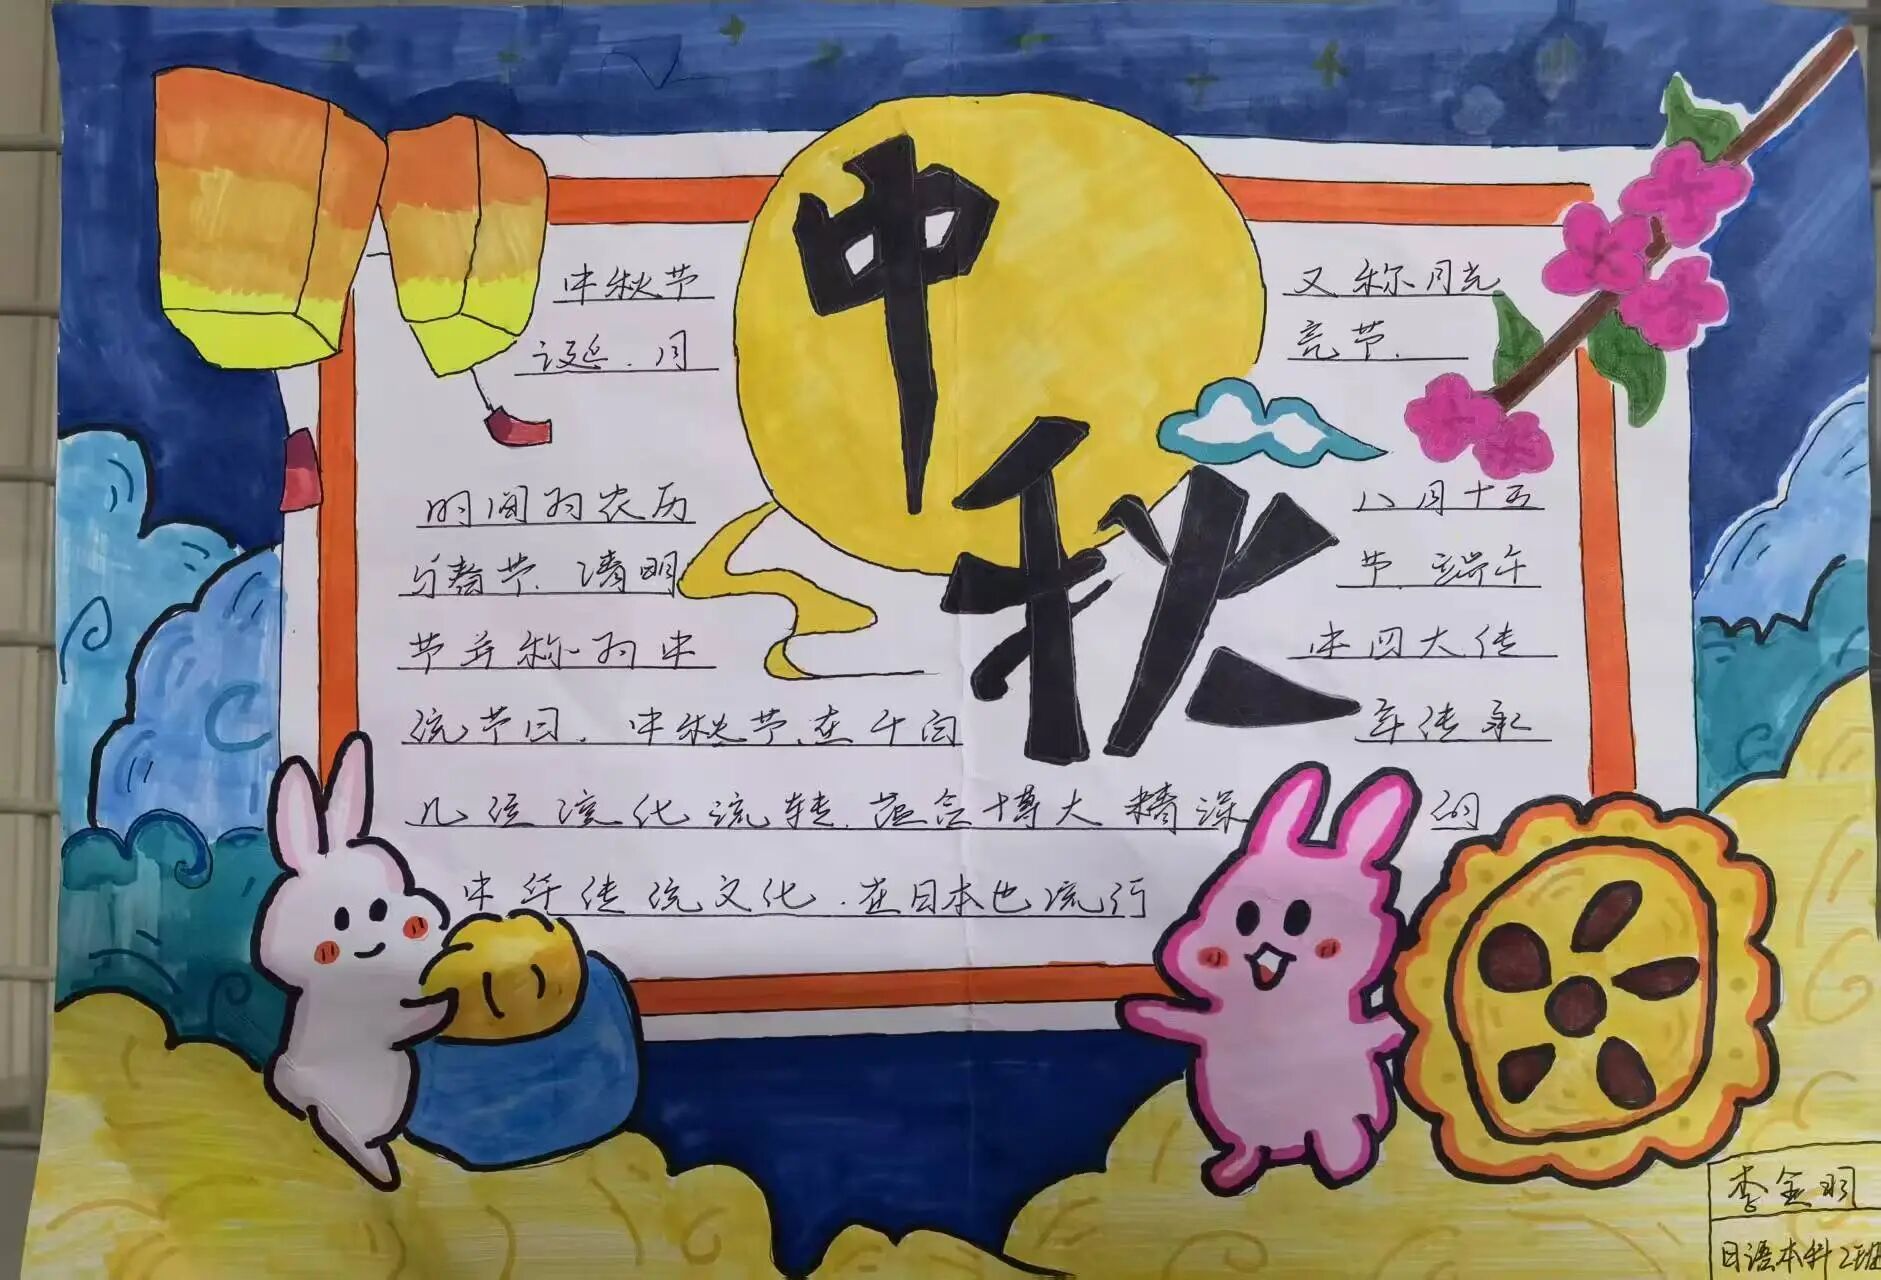 中秋
中秋节 又称月光
诞、月 亮节、
时间为农历 八月十五
与春节、清明 节、端午
节并称为中 中四大传
统节日、中秋节、在千百 年传承
几经流化流转、蕴含博大精深 的
中华传统文化、在日本也流行
李金羽
日语本科2班